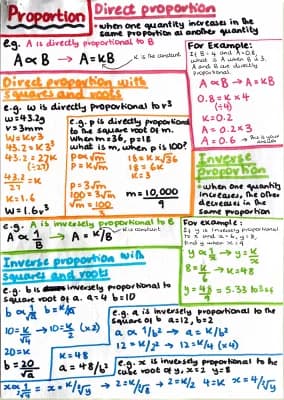 Proportion
Direct proportion
- when one quantity increases in the
same proportion as another quantity
e.g. A is directly proportional to B
A ∝ B → A = KB
K is the constant
For Example:
If B = 4 and A = 0.8,
what is A when B is 3.
A and B are directly
proportional
A ∝ B → A = KB
0.8 = K × 4
(÷4)
K = 0.2
A = 0.2 × 3
A = 0.6
This is your answer
Direct proportion with
squares and roots
e.g. w is directly proportional to v³
w = 43.2g
v = 3mm
W = Kv³
43.2 = K3³
43.2 = 27K
(÷27)
43.2 = K
27
K = 1.6
W = 1.6v³
e.g. p is directly proportional
to the square root of m.
When m = 36, p = 18
what is m, when p is 100?
p ∝ √m
p = K√m
18 = K × √36
18 = 6K
K = 3
p = 3√m
100 = 3√m
√m = 100
3
m = 10,000
9
Inverse
proportion
- when one quantity
increases, the other
decreases in the
same proportion
e.g. A is inversely proportional to B
A ∝ 1/B → A = K/B
K is constant
For example:
If y is inversely proportional
to x and x = 6, y = 8,
find y when x = 9
y ∝ 1/x → y = K/x
8 = K/6 → K = 48
y = 48/9 = 5.33 to
Inverse proportion with
squares and roots
e.g. b is inversely proportional to
square root of a. a = 4 b = 10
b ∝ 1/√a b = K/√a
10 = K/√4 → 10 = K/2 (×2)
20 = K
b = 20/√a
e.g. a is inversely proportional to the
square of b a = 12, b = 2
a ∝ 1/b² → a = K/b²
12 = K/2² → 12 = K/4 (×4)
K = 48
a = 48/b²
e.g. x is inversely proportional to the
cube root of y, x = 2 y = 8
x ∝ 1/∛y = x = K/∛y → 2 = K/∛8 → 2 = K/2 4 = K x = 4/∛y